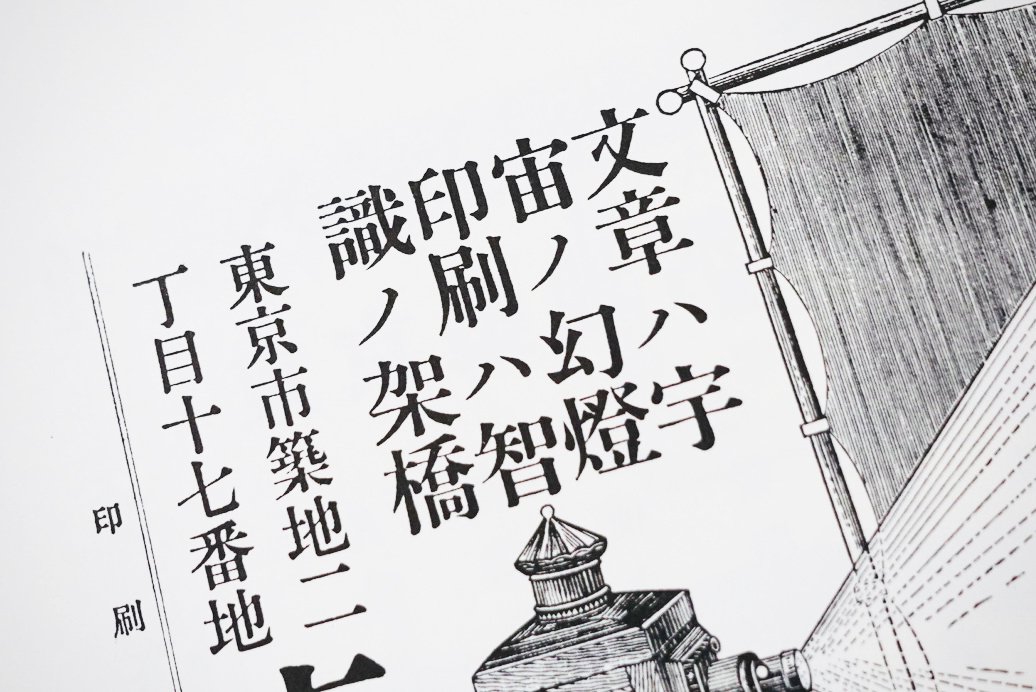 文章ハ宇
宙ノ幻燈
印刷ハ智
識ノ架橋
東京市築地二
丁目十七番地
印刷